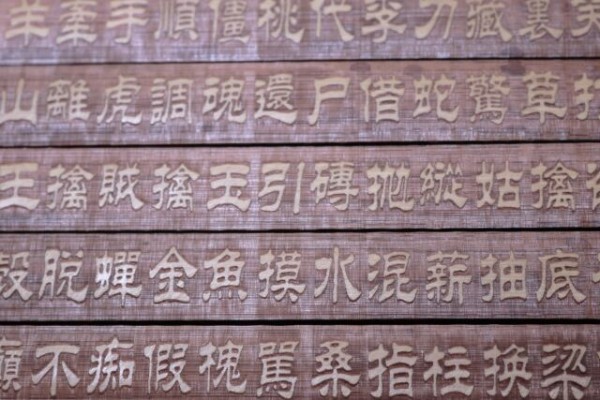 笑裏藏刀李代桃僵順手牽羊
打草驚蛇借尸還魂調虎離山
擒姑縱拋磚引玉擒賊擒王
底抽薪混水摸魚金蟬脫殼
梁換柱指桑罵槐假痴不